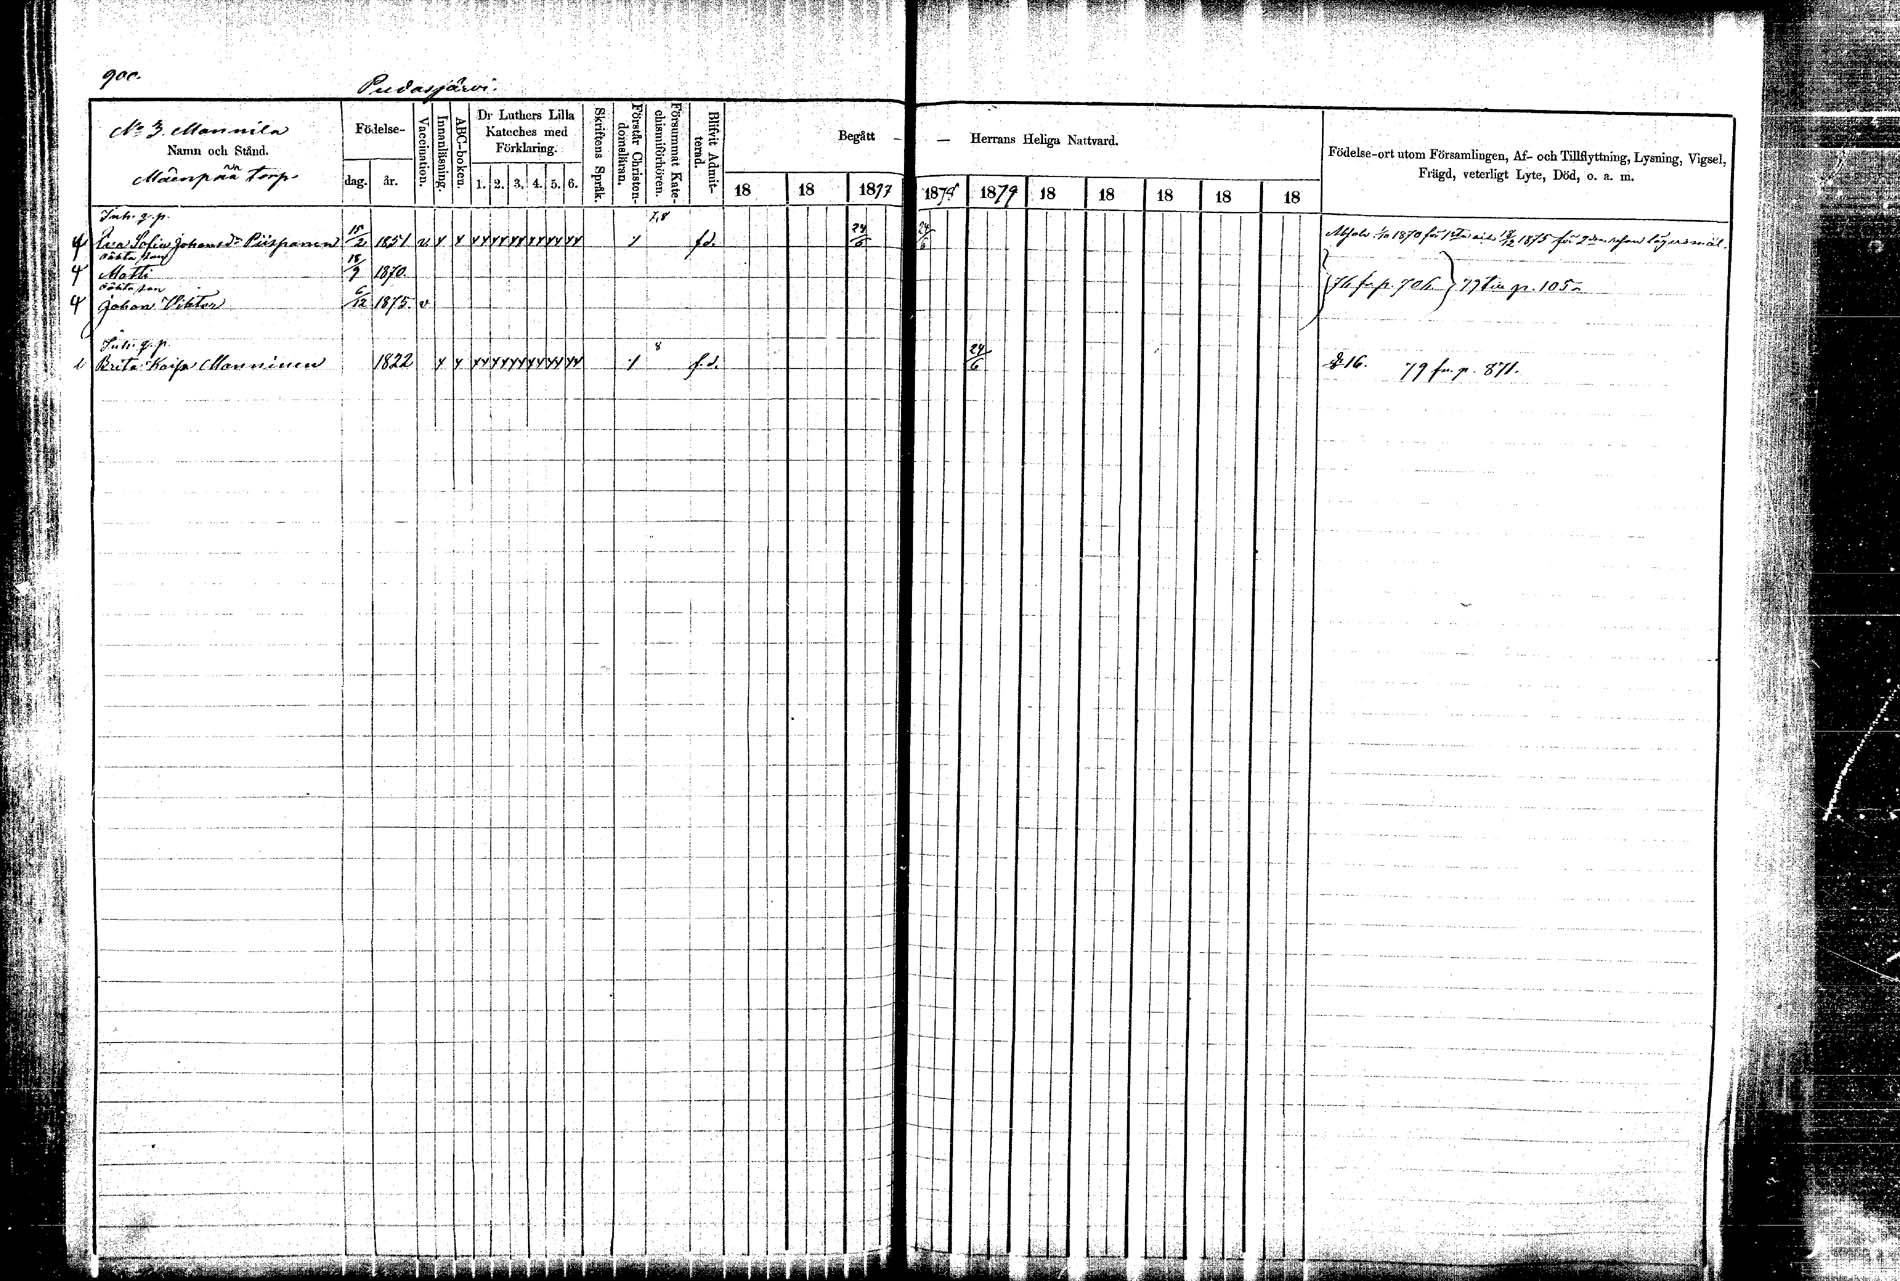 900.
Pudasjärvi.
No 3. Mannila
Namn och Stånd.
Mäenpää torp
Födelse-
dag. år.
Vaccination.
Innanläsning.
ABC-boken.
Dr Luthers Lilla
Kateches med
Förklaring.
1. 2. 3. 4. 5. 6.
Skriftens Språk.
Förstår Christen-
domsläran.
Försummat Kate-
chismiförhören.
Blifvit Admit-
terad.
Begått — — Herrans Heliga Nattvard.
18 18 1877 1878 1879 18 18 18 18 18
Födelse-ort utom Församlingen, Af- och Tillflyttning, Lysning, Vigsel,
Frägd, veterligt Lyte, Död, o. a. m.
Inh. q. p. 7,8
Eva Sofia Johansdr Piispanen 15/2 1851 v. f.d. 24/6 24/6 1870 för 1875 för lägersmål.
oäkta son
Matti 18/9 1870
oäkta son
Johan Viktor 6/12 1875. v 76 fr. p. 706 77 till p. 105
Inh. q. p. 8
Brita Kaisa Manninen 1822 f.d. 24/6 16. 79 fr. p. 871.